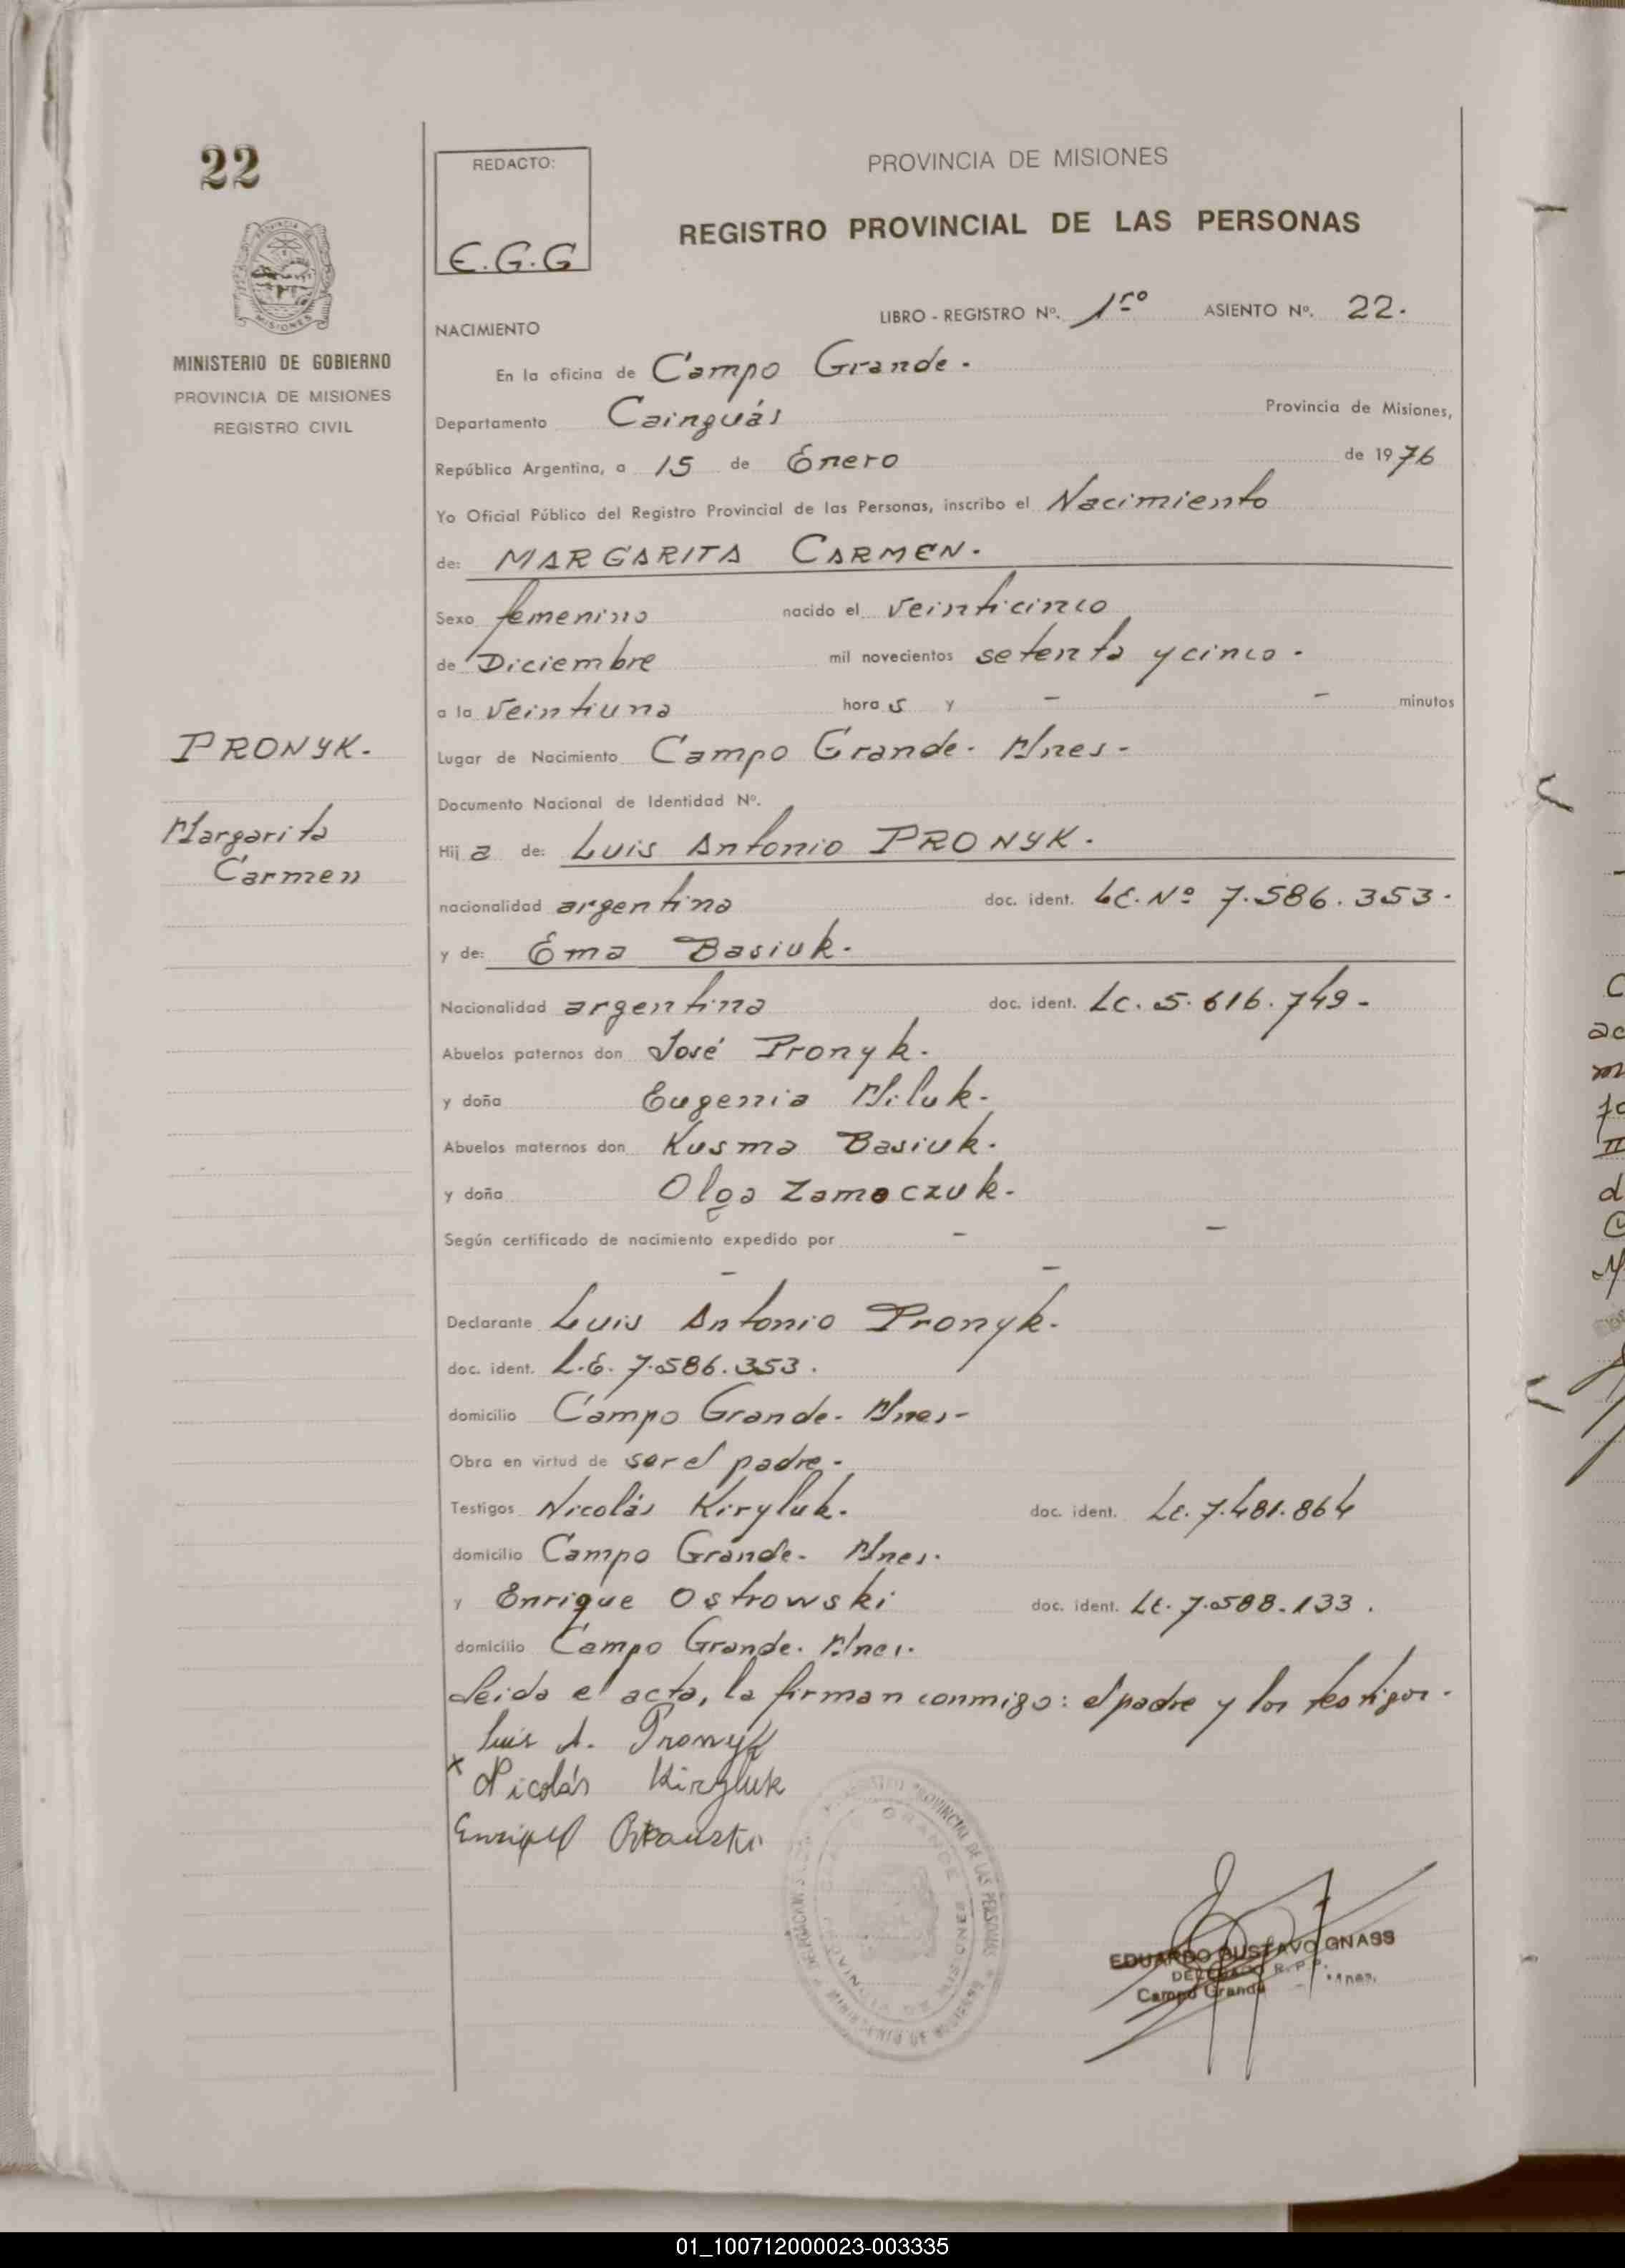 22
REDACTO:
E.G.G
PROVINCIA DE MISIONES
REGISTRO PROVINCIAL DE LAS PERSONAS
MISIONES
MINISTERIO DE GOBIERNO
PROVINCIA DE MISIONES
REGISTRO CIVIL
LIBRO - REGISTRO Nº. 1rº ASIENTO Nº. 22.
NACIMIENTO
En la oficina de Campo Grande.
Departamento Cainguás Provincia de Misiones,
República Argentina, a 15 de Enero de 1976
Yo Oficial Público del Registro Provincial de las Personas, inscribo el Nacimiento
de: MARGARITA CARMEN.
Sexo femenino nacido el veinticinco
de Diciembre mil novecientos setenta y cinco -
a la veintiuna hora s y - - minutos
PRONYK.
Margarita
Carmen
Lugar de Nacimiento Campo Grande - Mnes -
Documento Nacional de Identidad Nº.
Hij a de: Luis Antonio PRONYK.
nacionalidad argentina doc. ident. LE. Nº 7.586.353.
y de: Ema Basiuk.
Nacionalidad argentina doc. ident. LC. 5.616.749-
Abuelos paternos don José Pronyk.
y doña Eugenia Miluk-
Abuelos maternos don Kusma Basiuk.
y doña Olga Zamoczuk.
Según certificado de nacimiento expedido por - -
- -
Declarante Luis Antonio Pronyk.
doc. ident. L.E. 7.586.353.
domicilio Campo Grande. Mnes-
Obra en virtud de ser el padre.-
Testigos Nicolás Kiryluk. doc. ident. LE. 7.481.864
domicilio Campo Grande- Mnes.
y Enrique Ostrowski doc. ident. LE. 7.588.133.
domicilio Campo Grande. Mnes.
Leida el acta, la firman conmigo: el padre y los testigos.
Luis A. Pronyk
x Nicolás Kiryluk
REGISTRO PROVINCIAL DE LAS PERSONAS
EDUARDO GUSTAVO GNASS
DELEGADO R.P.P.
Campo Grande - Mnes.
01_100712000023-003335